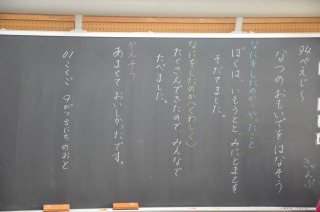 94ぺえじ〜
なつのおもいでをはなそう
なにをしたのか やったこと
ぼくは、いもうとと、みにとまとを
そだてました。
なにをしたのか〈くわしく〉
たくさんできたので みんなで
たべました。
かんそう
あまくて おいしかったです。